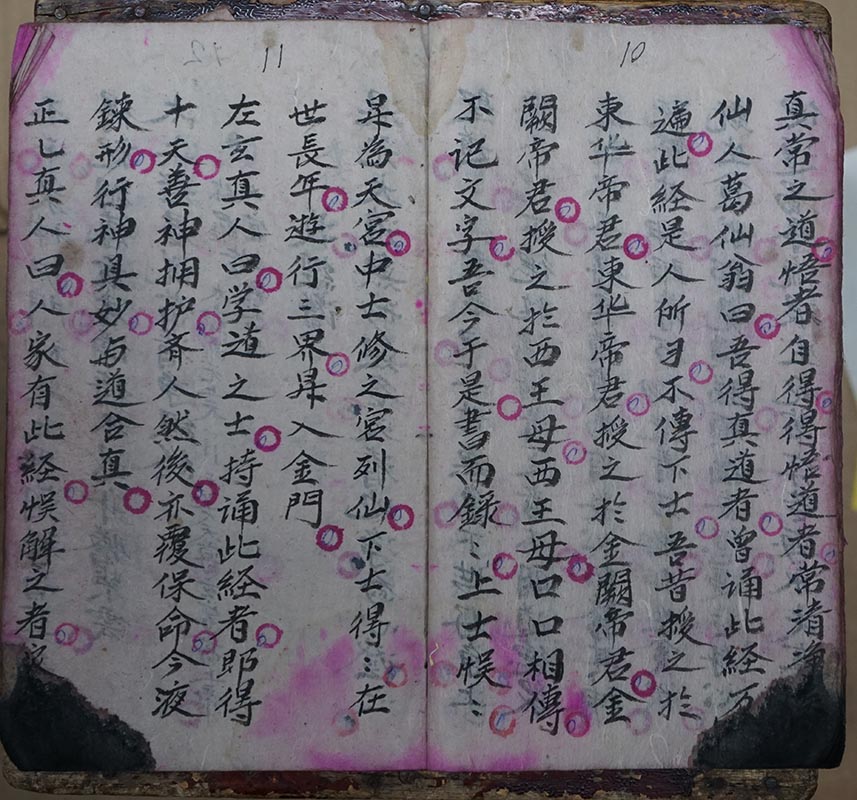 10
真常之道悟者自得得悟道者常清净
仙人葛仙翁曰吾得真道者曾诵此经万
遍此经是人所习不傳下士吾昔授之於
東华帝君東华帝君授之於金闕帝君金
闕帝君授之於西王母西王母口口相傳
不记文字吾今于是書而録〻上士悮〻
11
昇為天宮中士修之宮列仙下士得〻在
世長年遊行三界昇入金門
左玄真人曰学道之士持诵此経者即得
十天善神拥护斉人然後亦覆保命今液
鍊形行神具妙与道合真
正乚真人曰人家有此経悮解之者